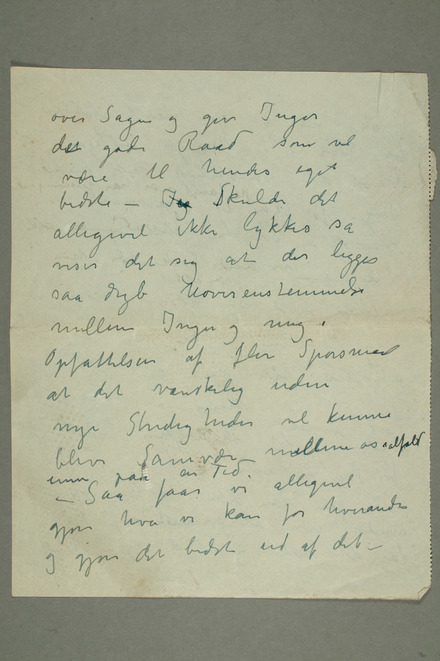 over Sagen og gir Inger
det gode Raad som vil
være til hendes eget
bedste – Skulde det
alligevel ikke lykkes saa
viser det sig at der ligger
saa dyb Uoverenstemmelse
mellem Inger og mig i
Opfattelsen af flere Spørsmaal
at det vanskelig uden
nye Stridigheder vil kunne
blive Samvær mellem os ialfald
paa en Tid.
– Saa faar vi alligevel
gjøre hva vi kan for hverandre
og gjøre det bedste ud af det –